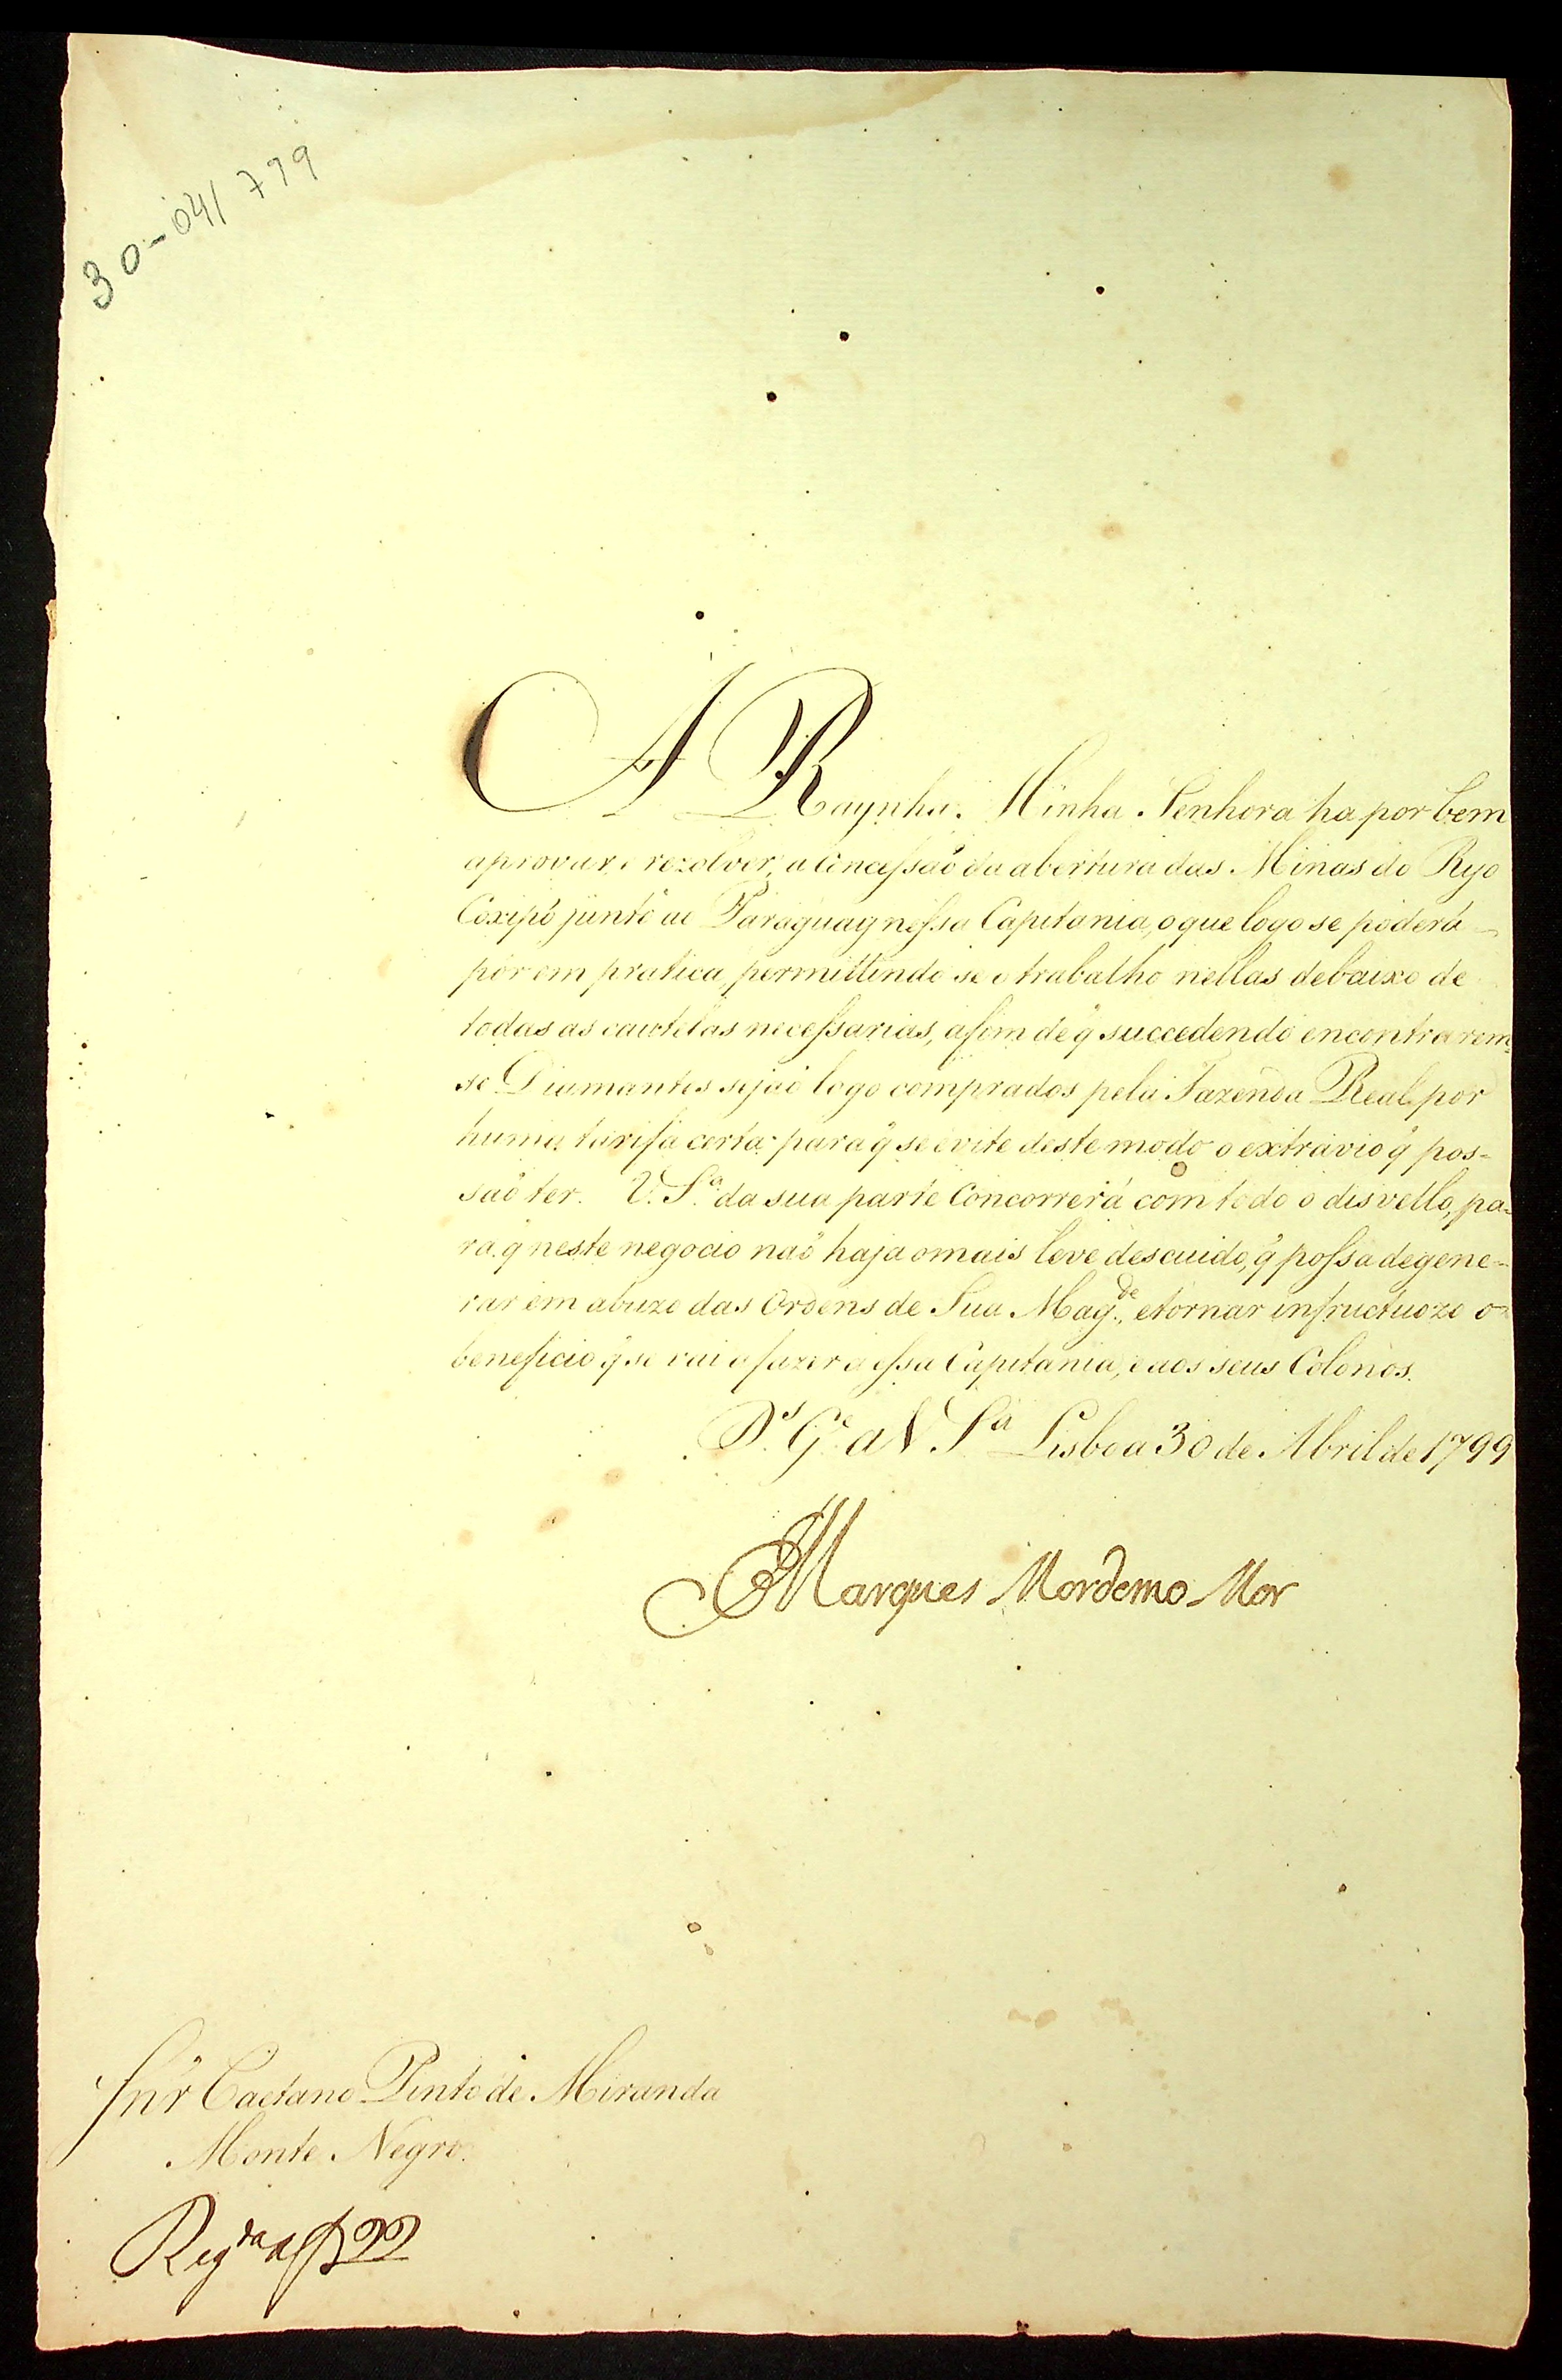 30-04/799
A Raynha. Minha Senhora ha por bem
aprovar, e rezolver, a Concessaõ da abertura das Minas do Ryo
Coxipó junto ao Paraguay nessa Capitania, o que logo se poderá
pôr em pratica, permittindo se o trabalho nellas debaixo de
todas as cautelas necessarias, afim de q̃ succedendo encontrarem-
se Diamantes sejaõ logo comprados pela Fazenda Real por
huma tarifa certa para q̃ se evite deste modo o extravio q̃ pos-
saõ ter. V. S.ª da sua parte Concorrerá com todo o disvello, pa-
ra q̃ neste negocio naõ haja o mais leve descuido, q̃ possa degene-
rar em abuzo das Ordens de Sua Mag.de, e tornar infructuozo o
beneficio q̃ se vai a fazer a essa Capitania, e aos seus Colonos.
D.s G.e a V. S.a Lisboa 30 de Abril de 1799
Marques Mordomo Mor
Snr Caetano Pinto de Miranda
Monte Negro.
Reg.da af 22